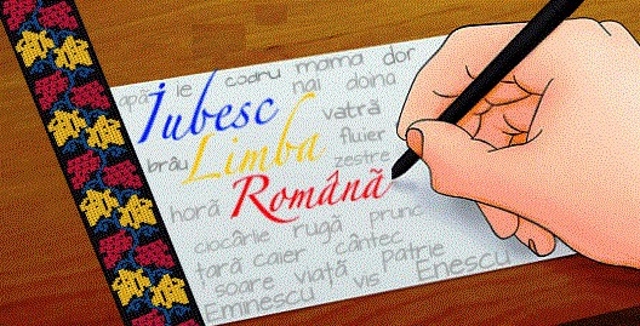 apă ie codru mama dor
nai doina
Iubesc vatră
fluier
brâu Limba zestre
Română
horă rugă prunc
ciocârlie cântec patrie
țară caier Enescu
soare viață vis
Eminescu